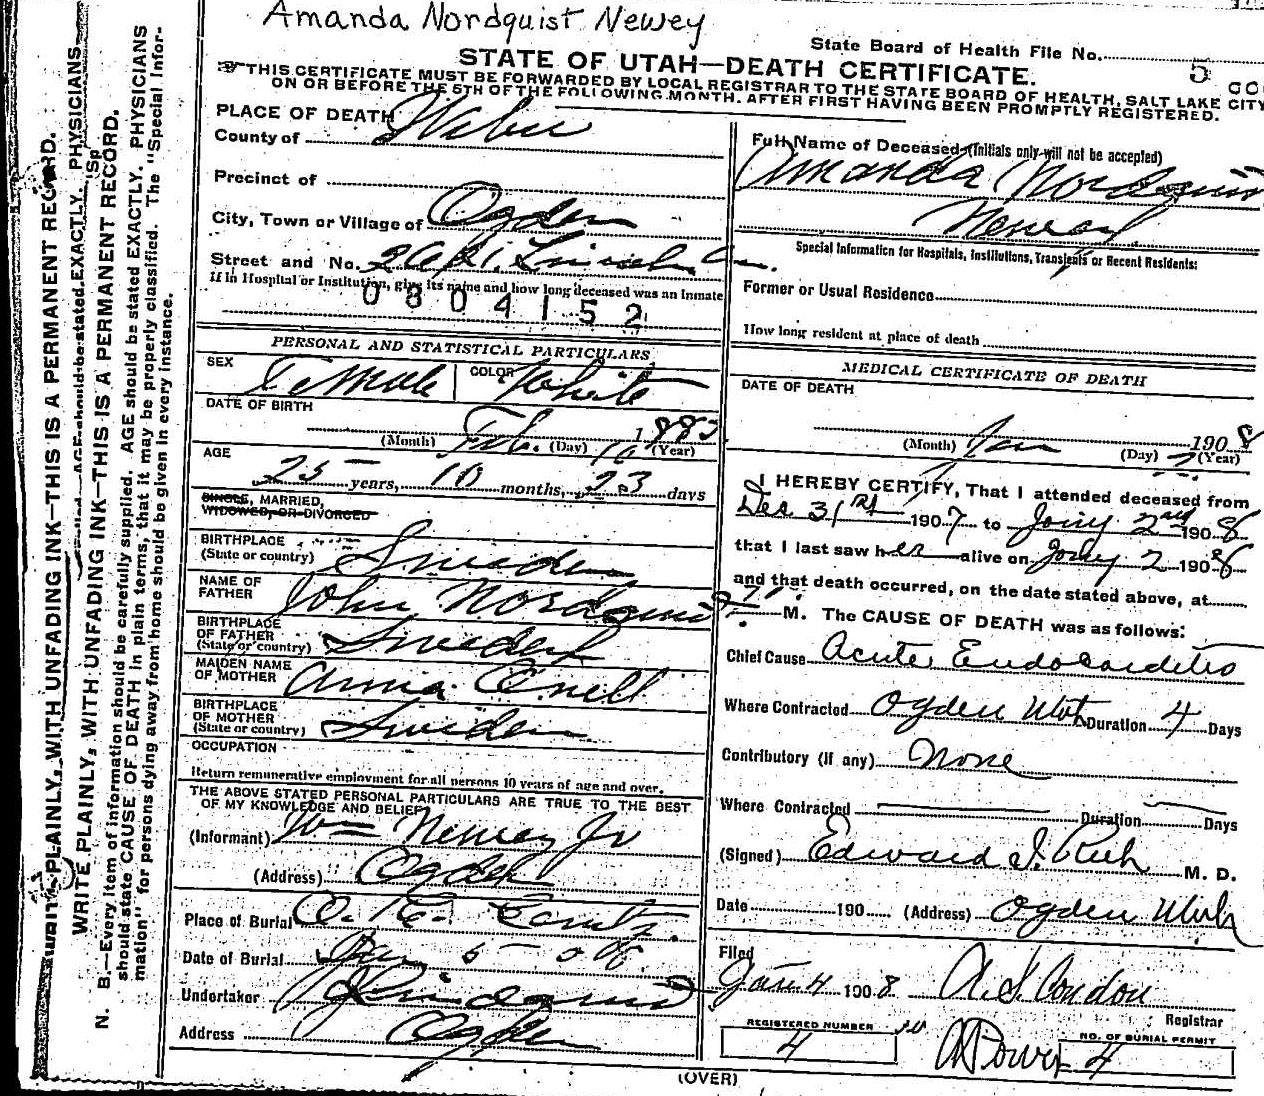 Amanda Nordquist Newey
State Board of Health File No. 5
STATE OF UTAH—DEATH CERTIFICATE.
THIS CERTIFICATE MUST BE FORWARDED BY LOCAL REGISTRAR TO THE STATE BOARD OF HEALTH, SALT LAKE CITY
ON OR BEFORE THE 5TH OF THE FOLLOWING MONTH. AFTER FIRST HAVING BEEN PROMPTLY REGISTERED.
PLACE OF DEATH
County of Weber
Precinct of
City, Town or Village of Ogden
Street and No. Lincoln Ave.
If in Hospital or Institution, give its name and how long deceased was an Inmate
0804152
PERSONAL AND STATISTICAL PARTICULARS
SEX Female COLOR White
DATE OF BIRTH
(Month) Feb. (Day) 10 1883 (Year)
AGE
25 years, 10 months, 23 days
SINGLE, MARRIED,
WIDOWED, OR DIVORCED
BIRTHPLACE
(State or country) Sweden
NAME OF
FATHER John Nordquist
BIRTHPLACE
OF FATHER
(State or country) Sweden
MAIDEN NAME
OF MOTHER Anna
BIRTHPLACE
OF MOTHER
(State or country) Sweden
OCCUPATION
Return remunerative employment for all persons 10 years of age and over.
THE ABOVE STATED PERSONAL PARTICULARS ARE TRUE TO THE BEST
OF MY KNOWLEDGE AND BELIEF
(Informant) Wm Newey Jr
(Address) Ogden
Place of Burial
Date of Burial Jan 5 - 08
Undertaker
Address Ogden
Full Name of Deceased (Initials only will not be accepted)
Amanda Nordquist
Newey
Special Information for Hospitals, Institutions, Transients or Recent Residents:
Former or Usual Residence
How long resident at place of death
MEDICAL CERTIFICATE OF DEATH
DATE OF DEATH
(Month) Jan (Day) 2 1908 (Year)
I HEREBY CERTIFY, That I attended deceased from
Dec 31st 1907 to Jany 2nd 1908
that I last saw her alive on Jany 2 1908
and that death occurred, on the date stated above, at
7 M. The CAUSE OF DEATH was as follows:
Chief Cause Acute Endocarditis
Where Contracted Ogden Utah Duration 4 Days
Contributory (if any) None
Where Contracted Duration Days
(Signed) Edward I. Rich M. D.
Date 190 (Address) Ogden Utah
Filed
Jan 4 1908 A. S. Condon
Registrar
REGISTERED NUMBER
4
NO. OF BURIAL PERMIT
4
(OVER)
WRITE PLAINLY, WITH UNFADING INK—THIS IS A PERMANENT RECORD.
AGE should be stated EXACTLY. PHYSICIANS
WRITE PLAINLY, WITH UNFADING INK—THIS IS A PERMANENT RECORD.
N. B.—Every item of information should be carefully supplied. AGE should be stated EXACTLY. PHYSICIANS
should state CAUSE OF DEATH in plain terms, that it may be properly classified. The "Special Infor-
mation" for persons dying away from home should be given in every instance.